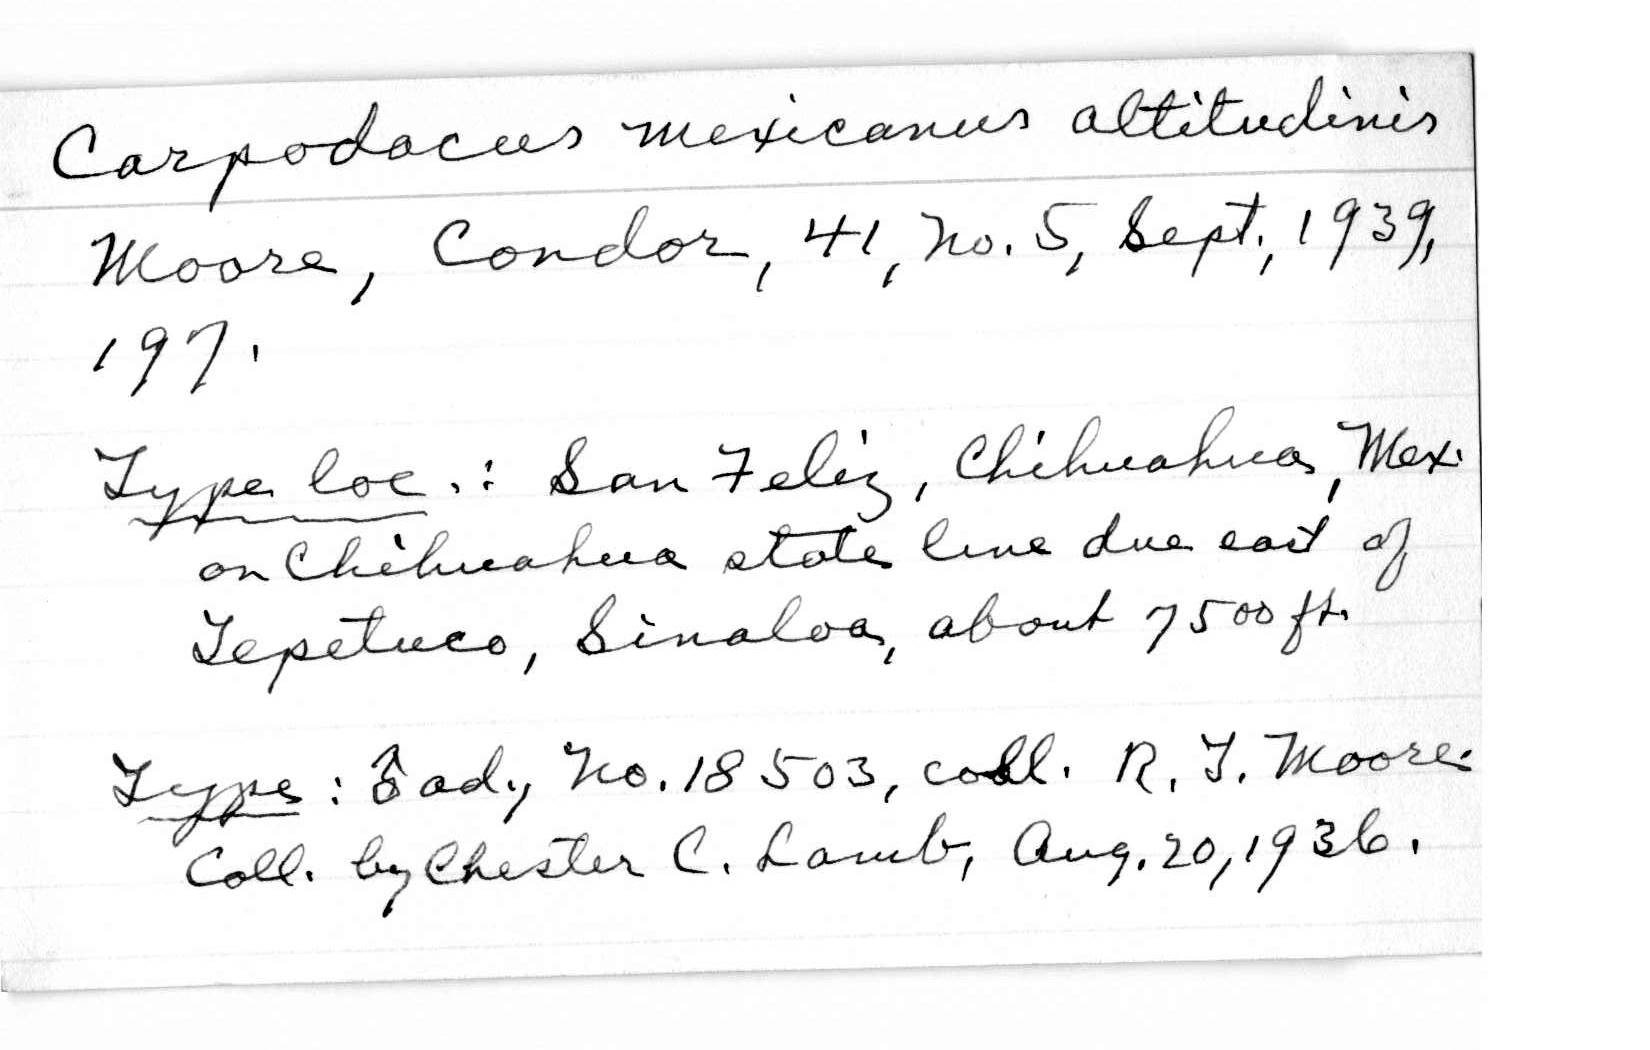 Carpodacus mexicanus altitudinis
Moore, Condor, 41, No. 5, Sept., 1939,
197.
Type loc.: San Feliz, Chihuahua, Mex.
on Chihuahua state line due east of
Tepetuco, Sinaloa, about 7500 ft.
Type: ♂ ad., No. 18503, coll. R. T. Moore.
Coll. by Chester C. Lamb, Aug. 20, 1936.